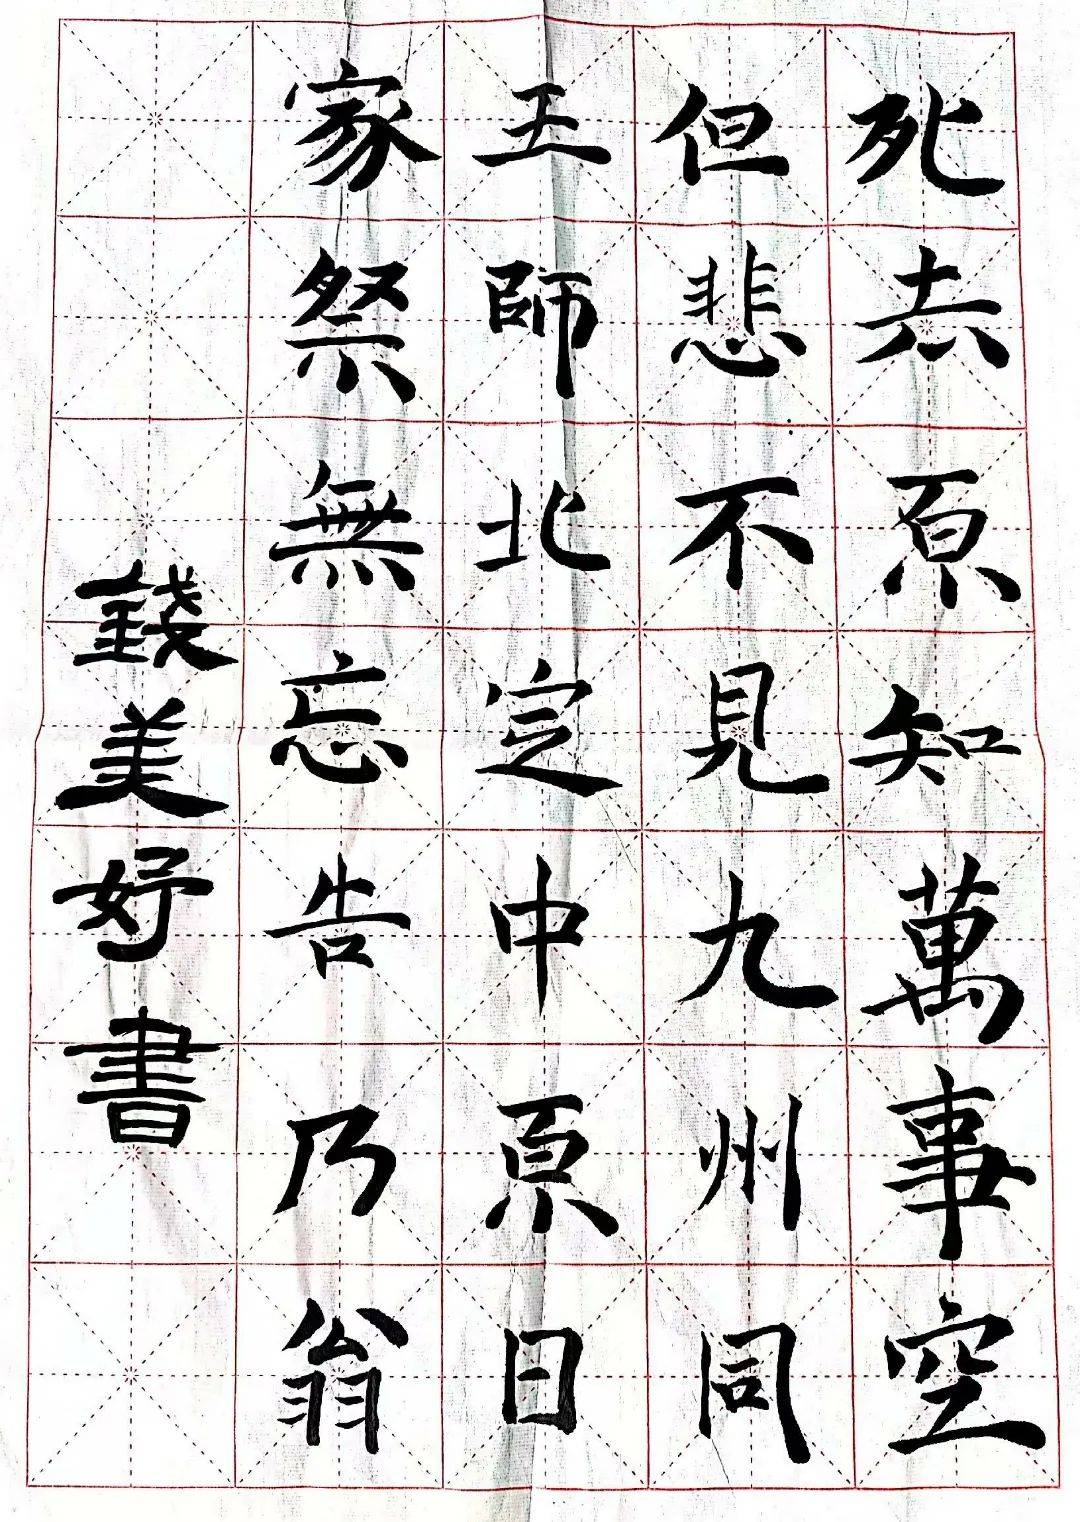 死去原知萬事空
但悲不見九州同
王師北定中原日
家祭無忘告乃翁
錢美好書